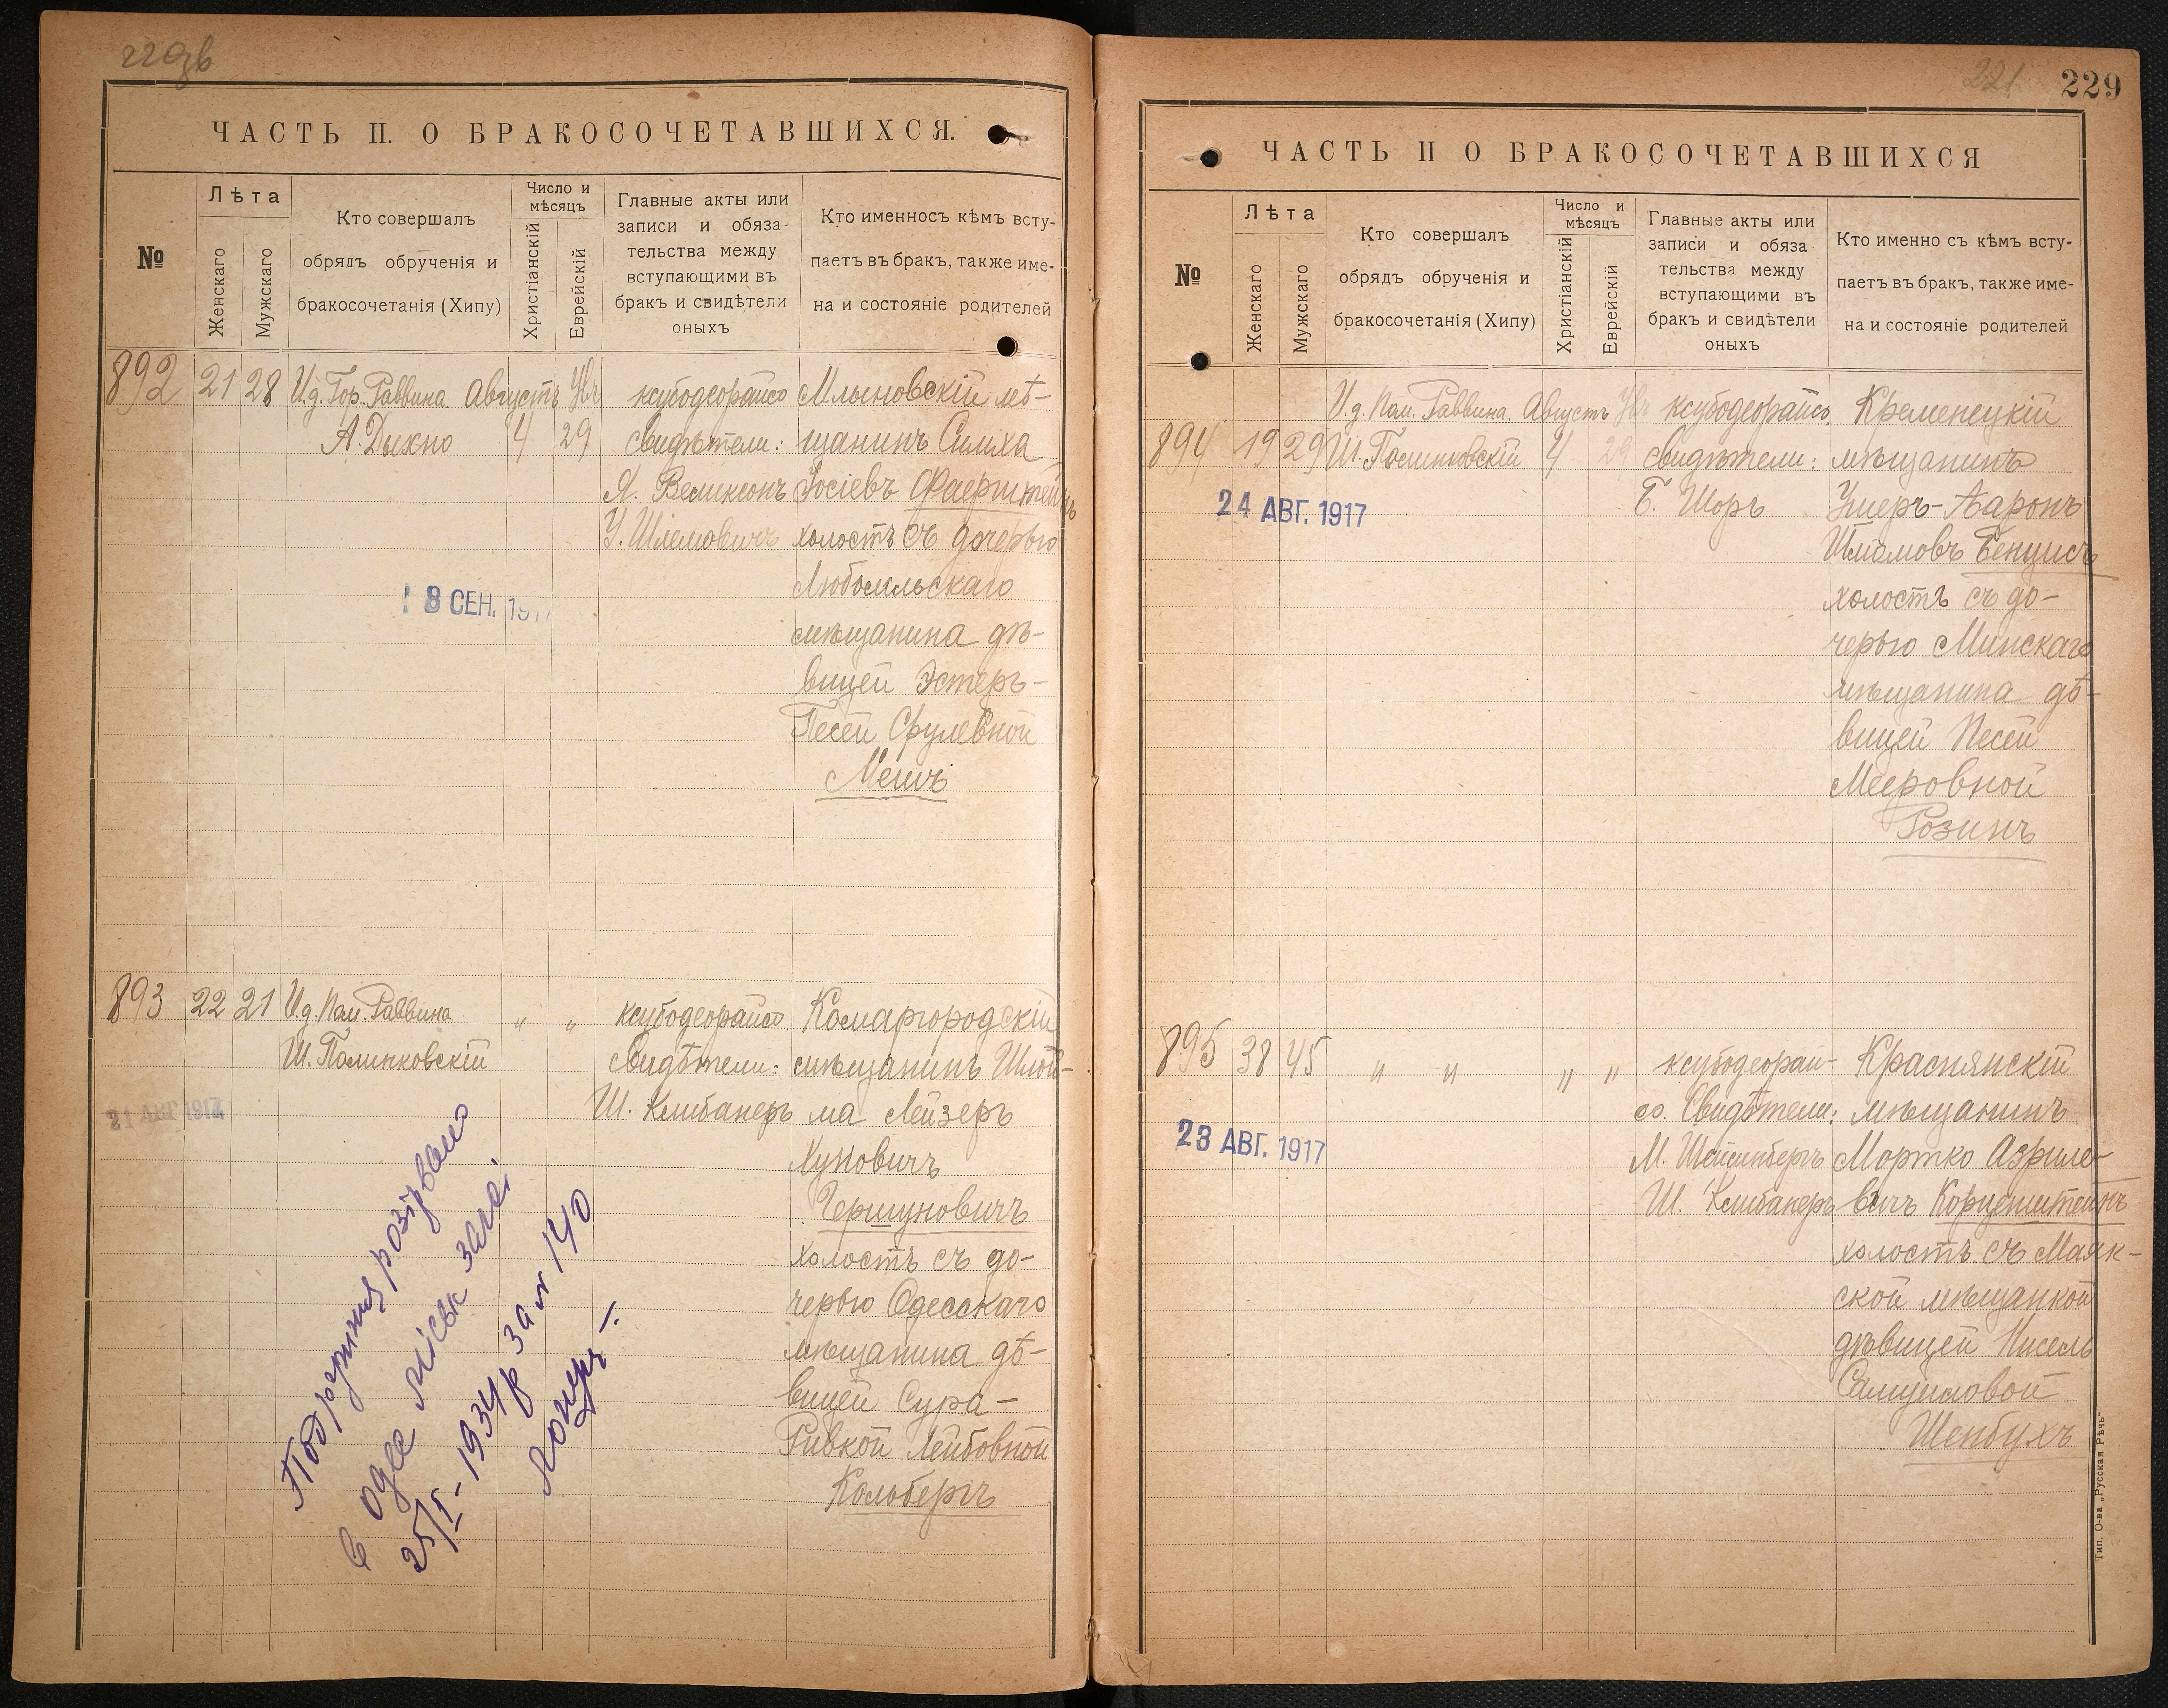 ЧАСТЬ II. О БРАКОСОЧЕТАВШИХСЯ.
№
Лѣта
Женскаго
Мужскаго
Кто совершалъ
обрядъ обрученія и
бракосочетанія (Хипу)
Число и
мѣсяцъ
Христіанскій
Еврейскій
Главные акты или
записи и обяза-
тельства между
вступающими въ
бракъ и свидѣтели
оныхъ
Кто именносъ кѣмъ всту-
паетъ въ бракъ, также име-
на и состояніе родителей
892 21 28
И.д. Гор. Раввина
А. Дыхно
Августъ
4
29
ксубодеорайсо
свидѣтели:
Я. Великсонъ
У. Шлемовичъ
Млыновскій мѣ-
щанинъ Симха
Іосіевъ Фаерштейнъ
холостъ съ дочерью
Любомльскаго
мѣщанина дѣ-
вицей Эстеръ-
Песей Срулевной
18 СЕН.
893 22 21
И.д. Пом. Раввина
Ш. Полинковскій
" "
ксубодеорайсо
свидѣтели:
Ш. Клибанеръ
Комаргородскій
мѣщанинъ Шлой-
ма Лейзеръ
Нуховичъ
Гершуновичъ
холостъ съ до-
черью Одесскаго
мѣщанина дѣ-
вицей Сура-
Ривкой Лейбовной
Кольбергъ
21 АВГ 1917
Подружжя розірвано
в одес міськ загсі
25/I-1934 р за № 140
229
ЧАСТЬ II О БРАКОСОЧЕТАВШИХСЯ
№
Лѣта
Женскаго
Мужскаго
Кто совершалъ
обрядъ обрученія и
бракосочетанія (Хипу)
Число и
мѣсяцъ
Христіанскій
Еврейскій
Главные акты или
записи и обяза
тельства между
вступающими въ
бракъ и свидѣтели
оныхъ
Кто именно съ кѣмъ всту-
паетъ въ бракъ, также име-
на и состояніе родителей
894 19 29
И.д. Пом. Раввина
Ш. Полинковскій
Августъ
4
29
ксубодеорайсо
свидѣтели:
Б. Шоръ
Кременецкій
мѣщанинъ
Ушеръ-Ааронъ
Шлёмовъ Бенцисъ
холостъ съ до-
черью Минскаго
мѣщанина дѣ-
вицей Песей
Мееровной
Розинъ
24 АВГ. 1917
895 38 45
" "
" "
ксубодеорай-
со. Свидѣтели:
М. Шейинбергъ
Ш. Клибанеръ
Краснянскій
мѣщанинъ
Мортко Азриле-
вичъ Корценштейнъ
холостъ съ Маяк-
ской мѣщанкой
дѣвицей Нисель
Самуиловой
Шенбухъ
23 АВГ. 1917
Тип. О-ва „Русская Рѣчь"